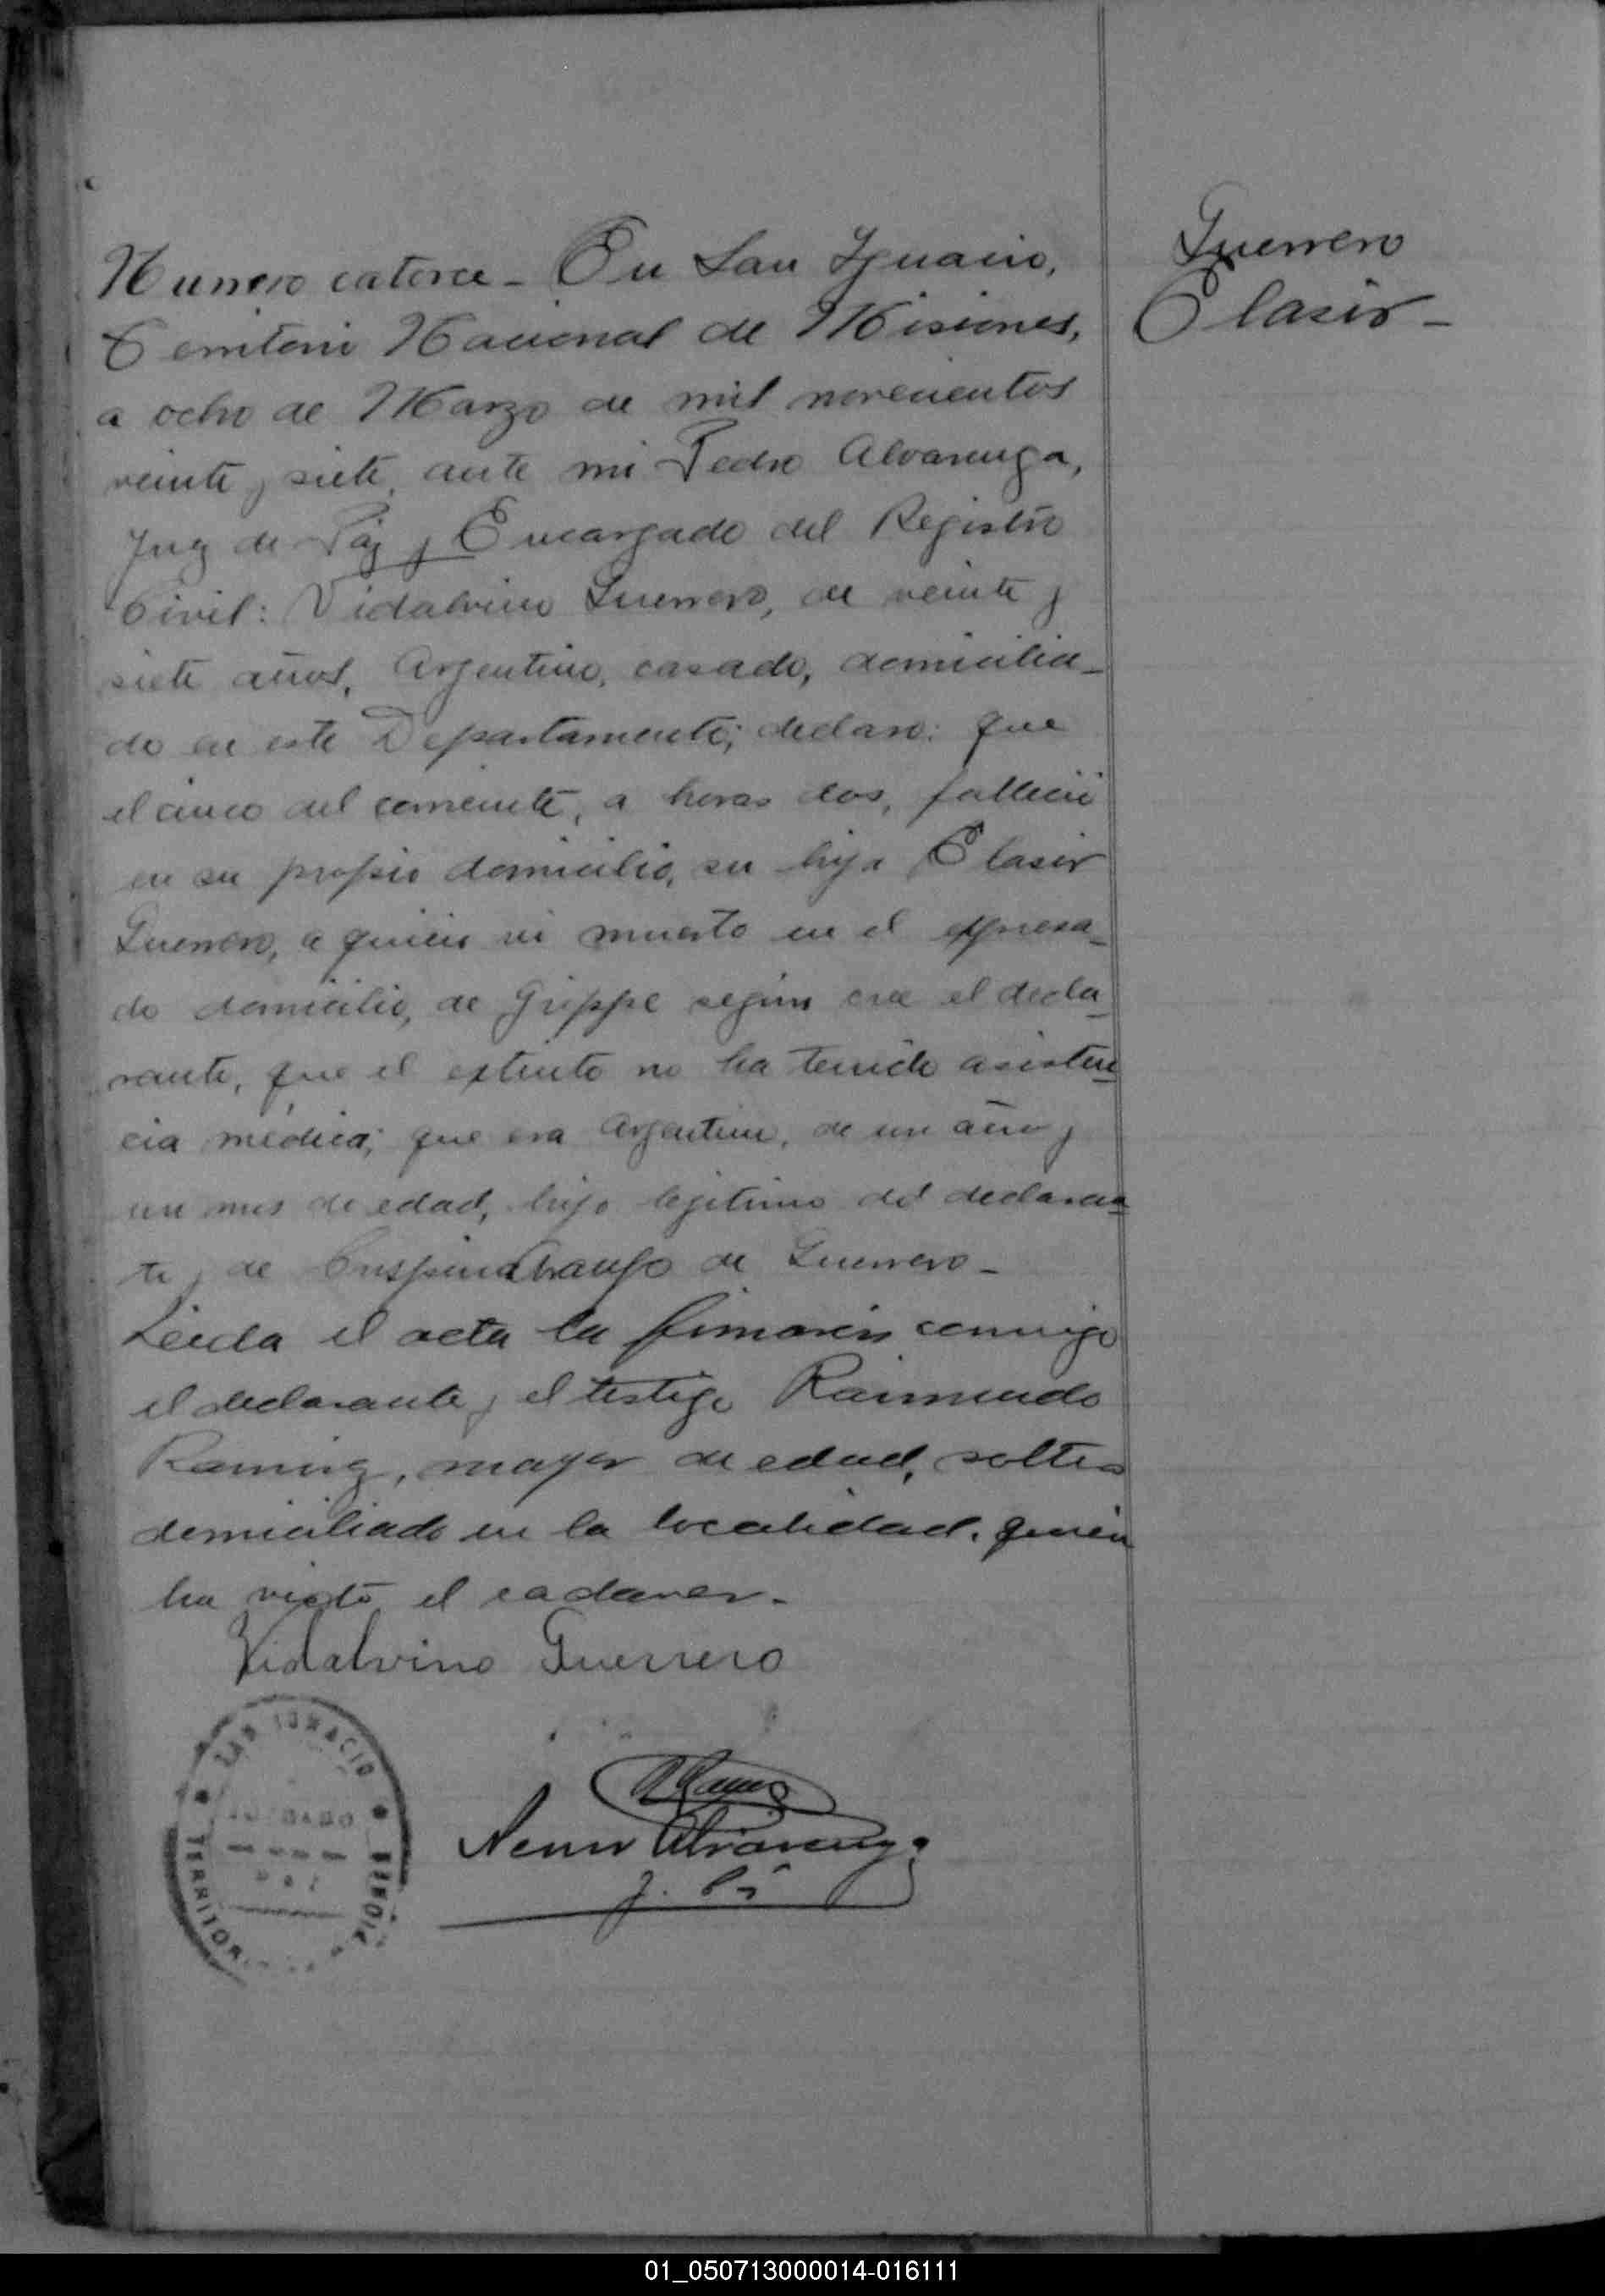 Guerrero
Elasir -
Numero catorce - En San Ignacio,
Territorio Nacional de Misiones,
a ocho de Marzo de mil novecientos
veinte y siete, ante mi Pedro Alvarenga,
Juez de Paz y Encargado del Registro
Civil: Vidalvino Guerrero, de veinte y
siete años, Argentino, casado, domicilia-
do en este Departamento; declaro: que
el cinco del corriente, a horas dos, falleció
en su propio domicilio, su hijo Elasir
Guerrero, a quien vi muerto en el expresa-
do domicilio, de Grippe según cree el decla-
rante, que el extinto no ha tenido asisten-
cia médica; que era Argentino, de un año y
un mes de edad, hijo legitimo del declaran-
te y de Crispina Araujo de Guerrero -
Leida el acta la firmaron conmigo
el declarante y el testigo Raimundo
mayor de edad, soltero
domiciliado en la localidad, quien
ha visto el cadaver -
Vidalvino Guerrero
SAN IGNACIO
JUZGADO
TERRITOR
Alvarenga
J. Pz
01_050713000014-016111